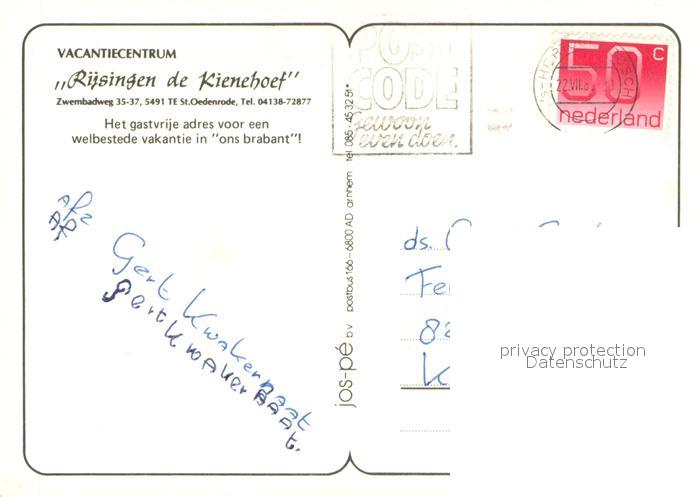 VACANTIECENTRUM
„Rijsingen de Kienehoef"
Zwembadweg 35-37, 5491 TE St.Oedenrode, Tel. 04138-72877
Het gastvrije adres voor een
welbestede vakantie in "ons brabant"!
afz
Gert Kwakernaat
Gert Kwakernaat.
jos-pé b.v. postbus 166 – 6800 AD arnhem tel. 085-453251*
POST
CODE
Gewoon
even doen.
22.VII.8
50 c
nederland
ds.
Fe
82
K
privacy protection
Datenschutz